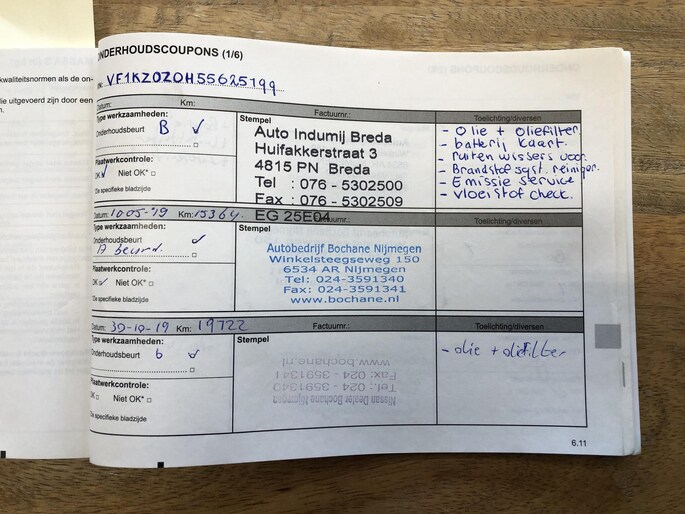 kwaliteitsnormen als de on-
lie uitgevoerd zijn door een
ONDERHOUDSCOUPONS (1/6)
VF1KZ0Z0H55625799
Datum: Km: Factuurnr.: Toelichting/diversen
Type werkzaamheden:
Onderhoudsbeurt B ✓
Plaatwerkcontrole:
OK ✓ Niet OK* □
*Zie specifieke bladzijde
Stempel
Auto Indumij Breda
Huifakkerstraat 3
4815 PN Breda
Tel : 076 - 5302500
Fax : 076 - 5302509
EG 25E04
- Olie + oliefilter.
- baterij kaart.
- ruiten wissers voor.
- Brandstof syst. reiniger.
- Emissie service
- vloeistof check.
Datum: 10-05-'19 Km: 15364. Factuurnr.: Toelichting/diversen
Type werkzaamheden:
Onderhoudsbeurt ✓
A beurd. □
Plaatwerkcontrole:
OK ✓ Niet OK* □
*Zie specifieke bladzijde
Stempel
Autobedrijf Bochane Nijmegen
Winkelsteegseweg 150
6534 AR Nijmegen
Tel: 024-3591340
Fax: 024-3591341
www.bochane.nl
Datum: 30-10-19 Km: 19722 Factuurnr.: Toelichting/diversen
Type werkzaamheden:
Onderhoudsbeurt b ✓
Plaatwerkcontrole:
OK □ Niet OK* □
*Zie specifieke bladzijde
Stempel
www.bochane.nl
Fax: 024 - 3591341
Tel.: 024 - 3591340
Nissan Dealer Bochane Nijmegen
- olie + oliefilter
6.11